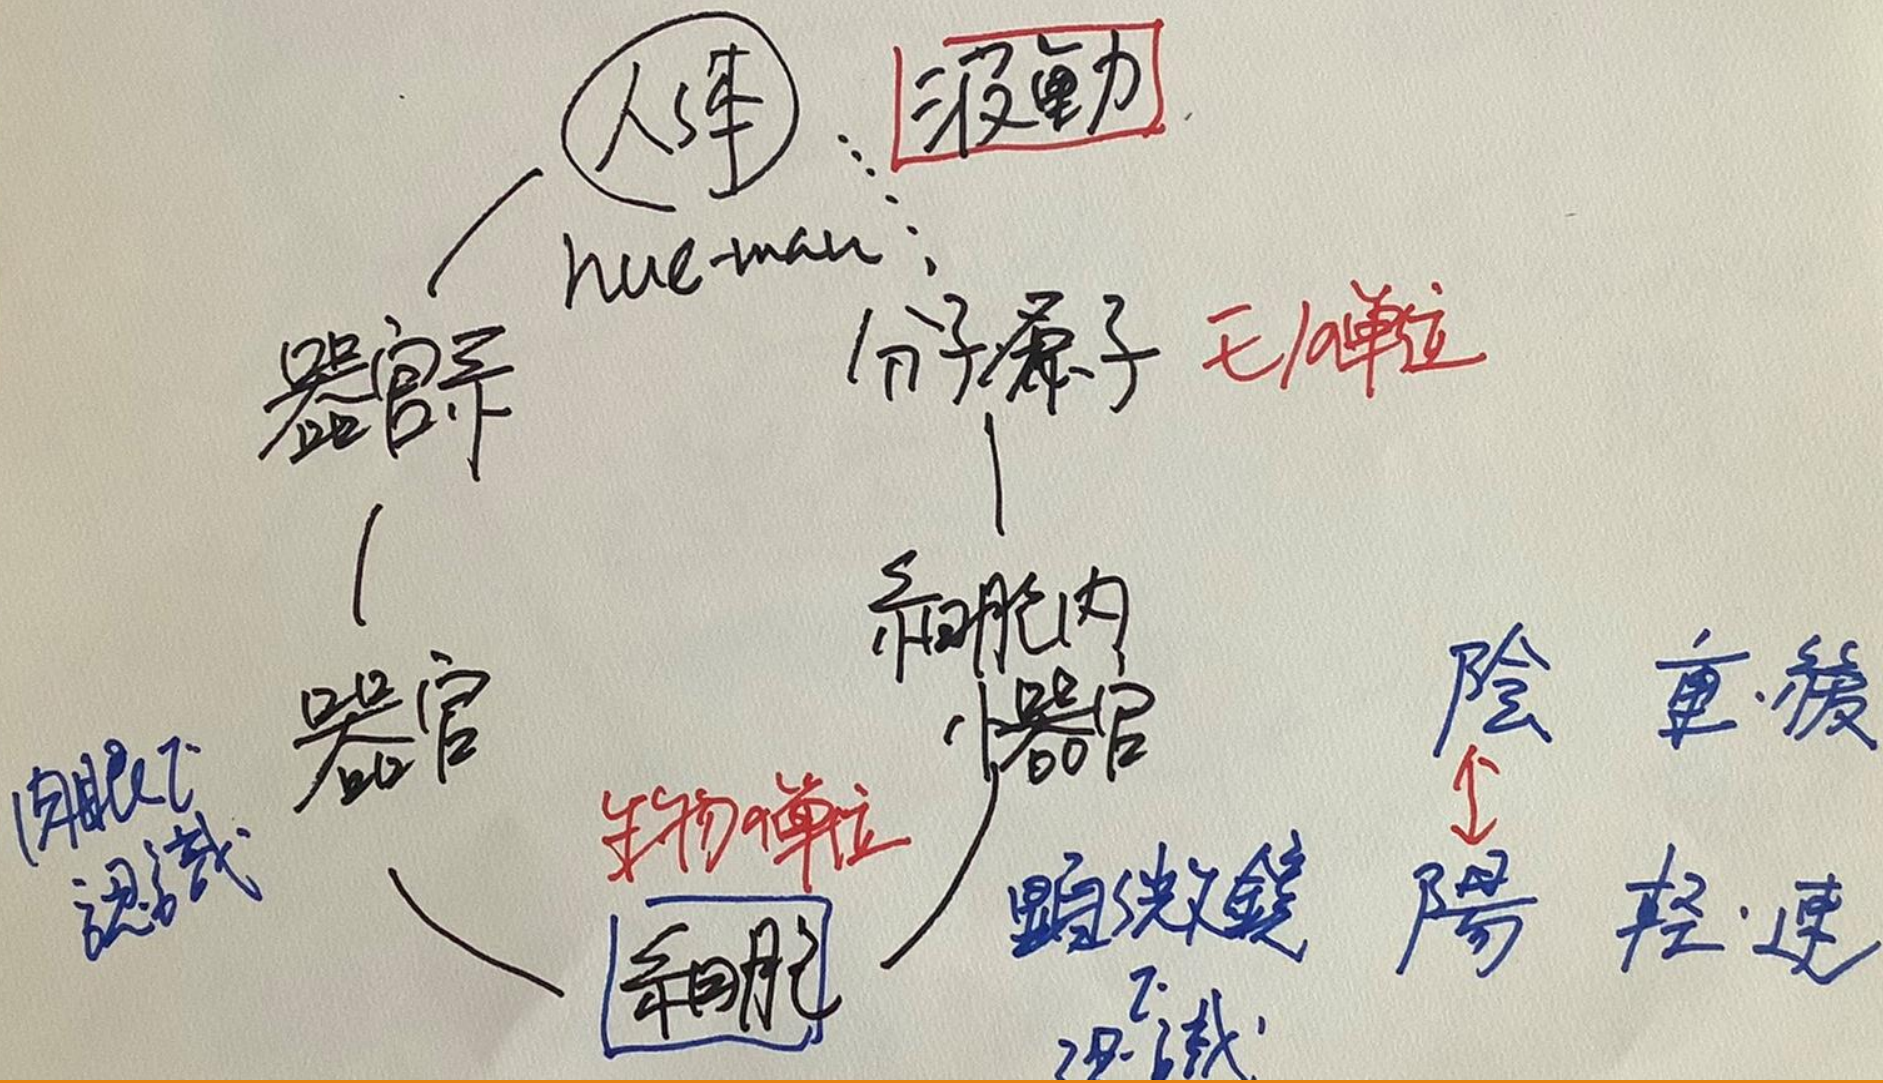 人体
波動
hue-man
器官系
分子・原子
モノの単位
細胞内
小器官
器官
肉眼で
認識
生物の単位
細胞
顕微鏡
で
認識
陰 重・緩
陽 軽・速